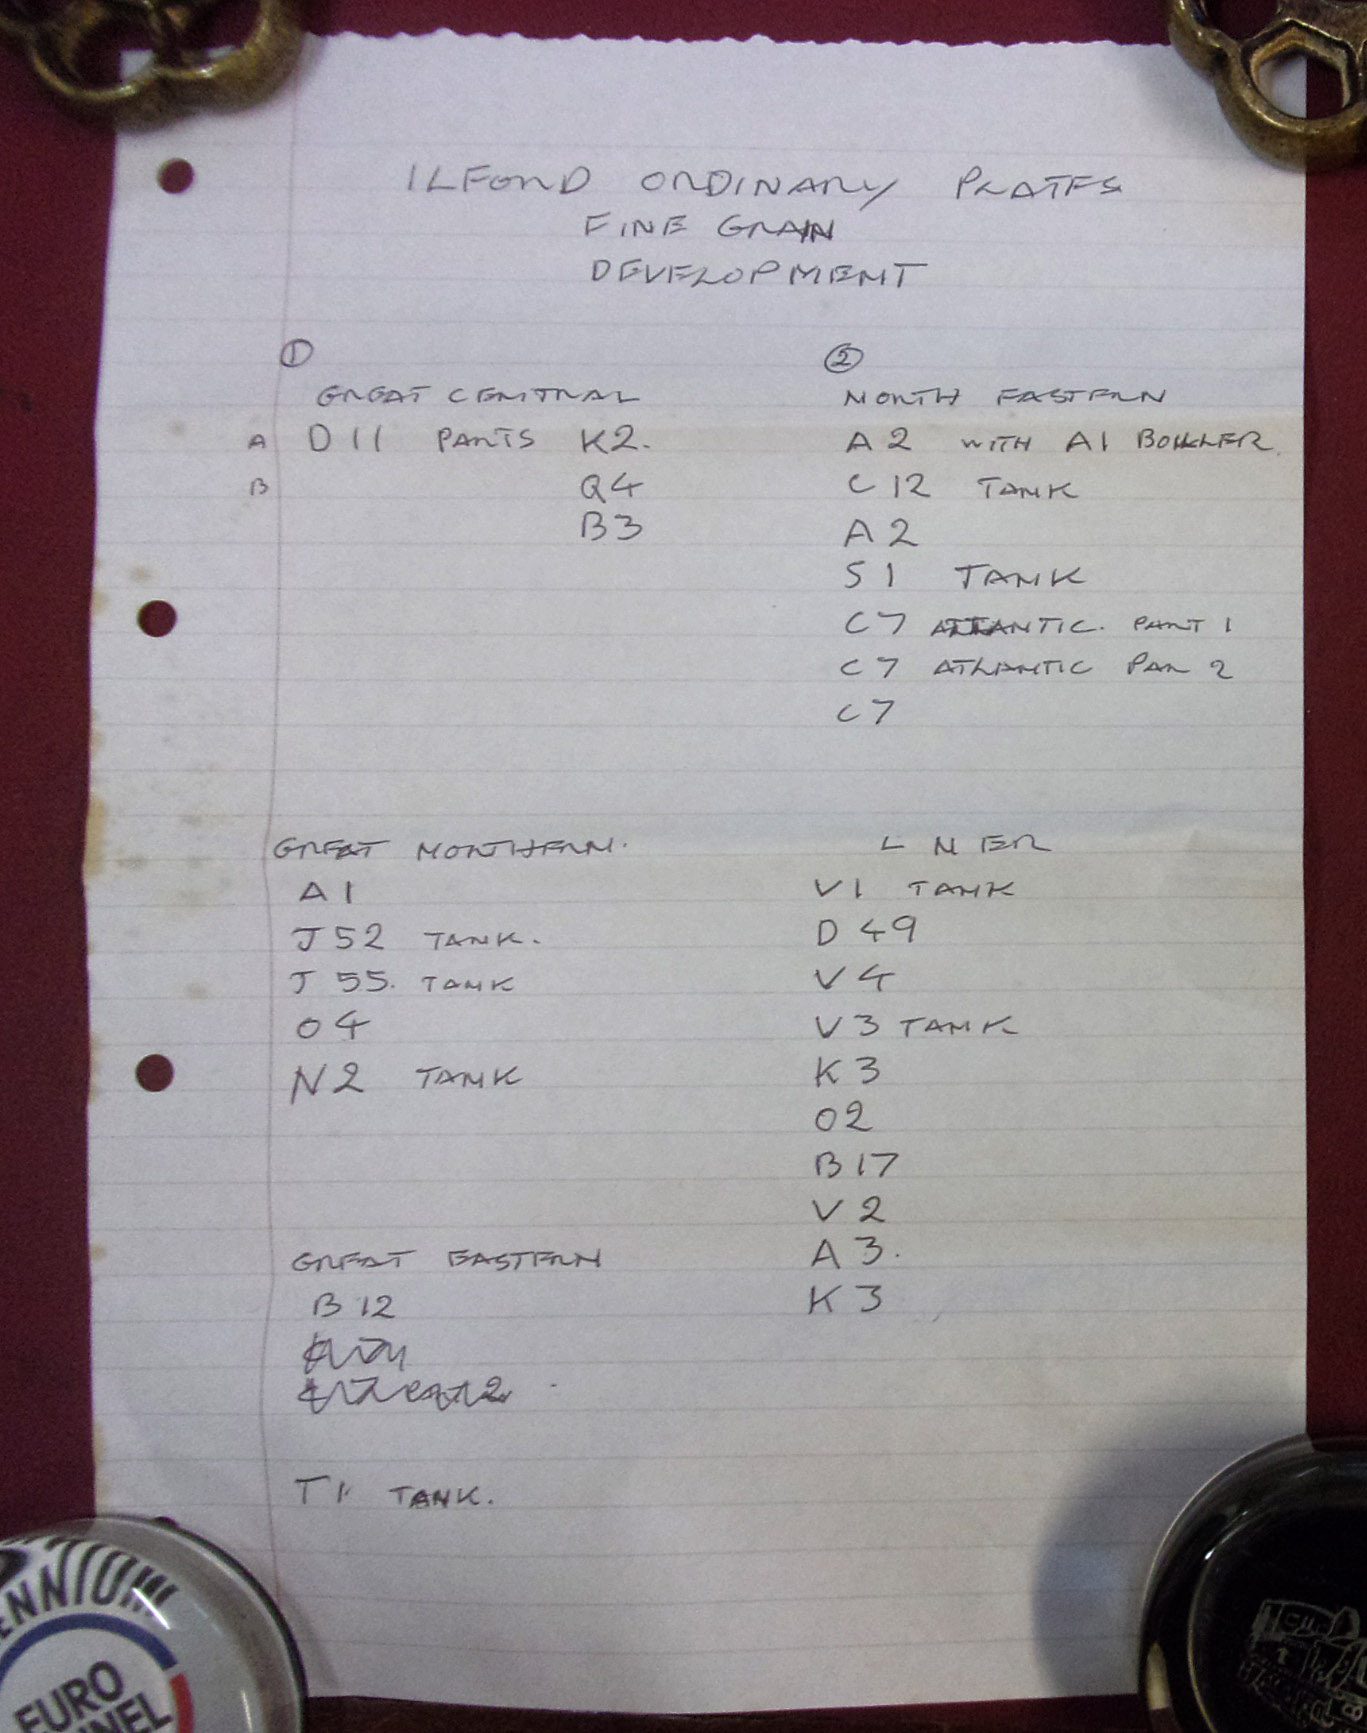 ILFORD ORDINARY PLATES
FINE GRAIN
DEVELOPMENT
①
GREAT CENTRAL
A D11 PARTS K2.
B Q4
B3
②
NORTH EASTERN
A2 WITH A1 BOILER.
C12 TANK
A2
S1 TANK
C7 ATLANTIC. PART 1
C7 ATLANTIC PAR 2
C7
GREAT NORTHERN.
A1
J52 TANK.
J 55. TANK
O4
N2 TANK
L N ER
V1 TANK
D49
V4
V3 TANK
K3
O2
B17
V2
A3.
K3
GREAT EASTERN
B12
T1 TANK.
ENNIUM
EURO
NNEL